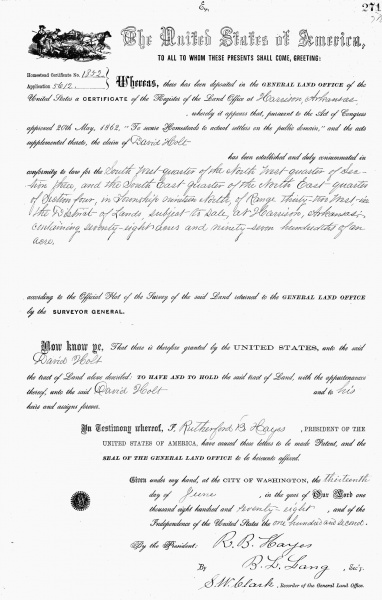 271
The United States of America,
TO ALL TO WHOM THESE PRESENTS SHALL COME, GREETING:
Homestead Certificate No. 1842
Application 5612
Whereas, there has been deposited in the GENERAL LAND OFFICE of the
United States a CERTIFICATE of the Register of the Land Office at Harrison, Arkansas,
, whereby it appears that, pursuant to the Act of Congress
approved 20th May, 1862, "To secure Homesteads to actual settlers on the public domain," and the acts
supplemental thereto, the claim of David Holt
has been established and duly consummated in
conformity to law for the South West quarter of the North West quarter of Sec-
tion three, and the South East quarter of the North East quarter
of Section four, in Township nineteen North, of Range thirty-two West in
the District of Lands subject to sale, at Harrison, Arkansas,
containing seventy-eight acres and ninety-seven hundredths of an
acre.
according to the Official Plat of the Survey of the said Land returned to the GENERAL LAND OFFICE
by the SURVEYOR GENERAL.
Now know ye, That there is therefore granted by the UNITED STATES, unto the said
David Holt
the tract of Land above described: TO HAVE AND TO HOLD the said tract of Land, with the appurtenances
thereof, unto the said David Holt and to his
heirs and assigns forever.
In Testimony whereof, I, Rutherford B. Hayes, PRESIDENT OF THE
UNITED STATES OF AMERICA, have caused these letters to be made Patent, and the
SEAL OF THE GENERAL LAND OFFICE to be hereunto affixed.
Given under my hand, at the CITY OF WASHINGTON, the thirteenth
day of June, in the year of Our Lord one
thousand eight hundred and seventy eight, and of the
Independence of the United States the one hundred and second.
By the President: R. B. Hayes
By D. D. Lang, Sec'y.
S. W. Clark, Recorder of the General Land Office.